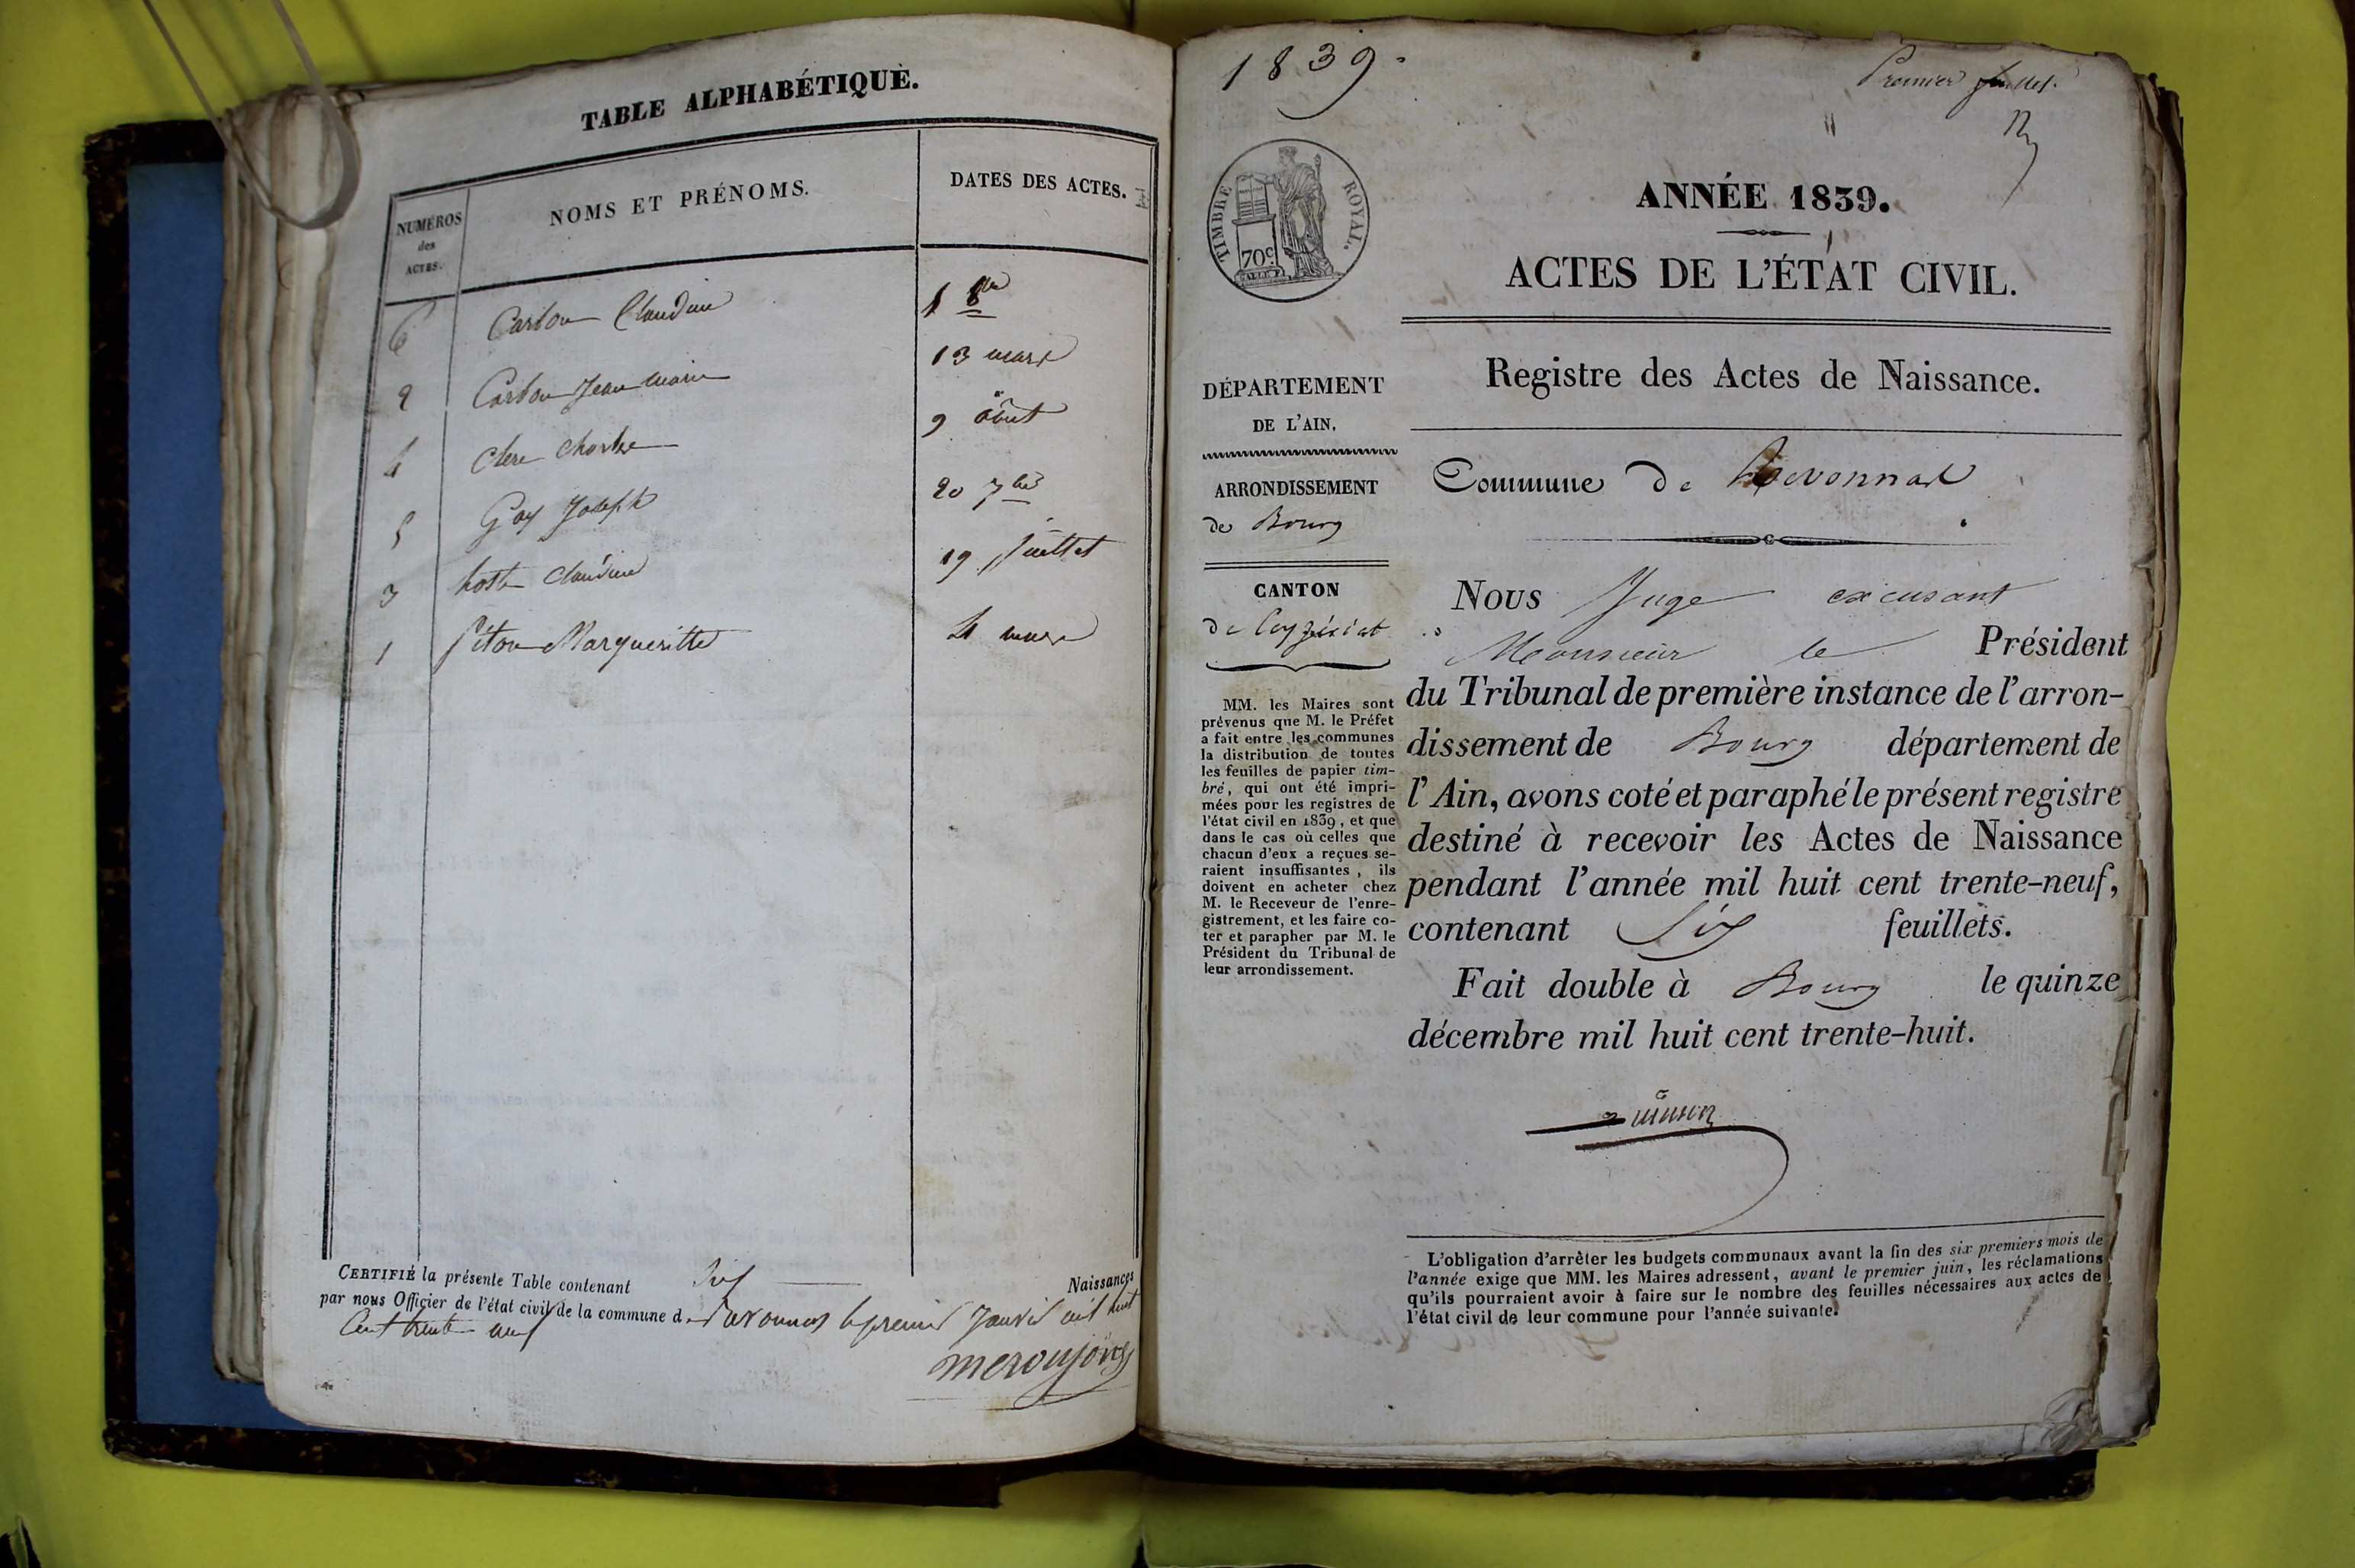 TABLE ALPHABÉTIQUE.
NUMÉROS des ACTES.
NOMS ET PRÉNOMS.
DATES DES ACTES.
6 Carbon Claudine
2 Carbon Jean Marie 13 mars
4 Clere Charles 9 août
5 Goy Joseph 20 7bre
3 Claudine 19 Juillet
1 Piton Margueritte 4 mars
CERTIFIÉ la présente Table contenant Six Naissances
par nous Officier de l'état civil de la commune de le premier Janvier mil huit
Cent trente neuf
1839.
Premier feuillet.
TIMBRE ROYAL.
70c.
ANNÉE 1839.
ACTES DE L'ÉTAT CIVIL.
Registre des Actes de Naissance.
Commune de
DÉPARTEMENT
DE L'AIN.
ARRONDISSEMENT
de Bourg
CANTON
de Ceyzériat
MM. les Maires sont
prévenus que M. le Préfet
a fait entre les communes
la distribution de toutes
les feuilles de papier tim-
bré, qui ont été impri-
mées pour les registres de
l'état civil en 1839, et que
dans le cas où celles que
chacun d'eux a reçues se-
raient insuffisantes, ils
doivent en acheter chez
M. le Receveur de l'enre-
gistrement, et les faire co-
ter et parapher par M. le
Président du Tribunal de
leur arrondissement.
Nous Juge excusant
Monsieur le Président
du Tribunal de première instance de l'arron-
dissement de Bourg département de
l'Ain, avons coté et paraphé le présent registre
destiné à recevoir les Actes de Naissance
pendant l'année mil huit cent trente-neuf,
contenant Six feuillets.
Fait double à Bourg le quinze
décembre mil huit cent trente-huit.
L'obligation d'arrêter les budgets communaux avant la fin des six premiers mois de
l'année exige que MM. les Maires adressent, avant le premier juin, les réclamations
qu'ils pourraient avoir à faire sur le nombre des feuilles nécessaires aux actes de
l'état civil de leur commune pour l'année suivante.